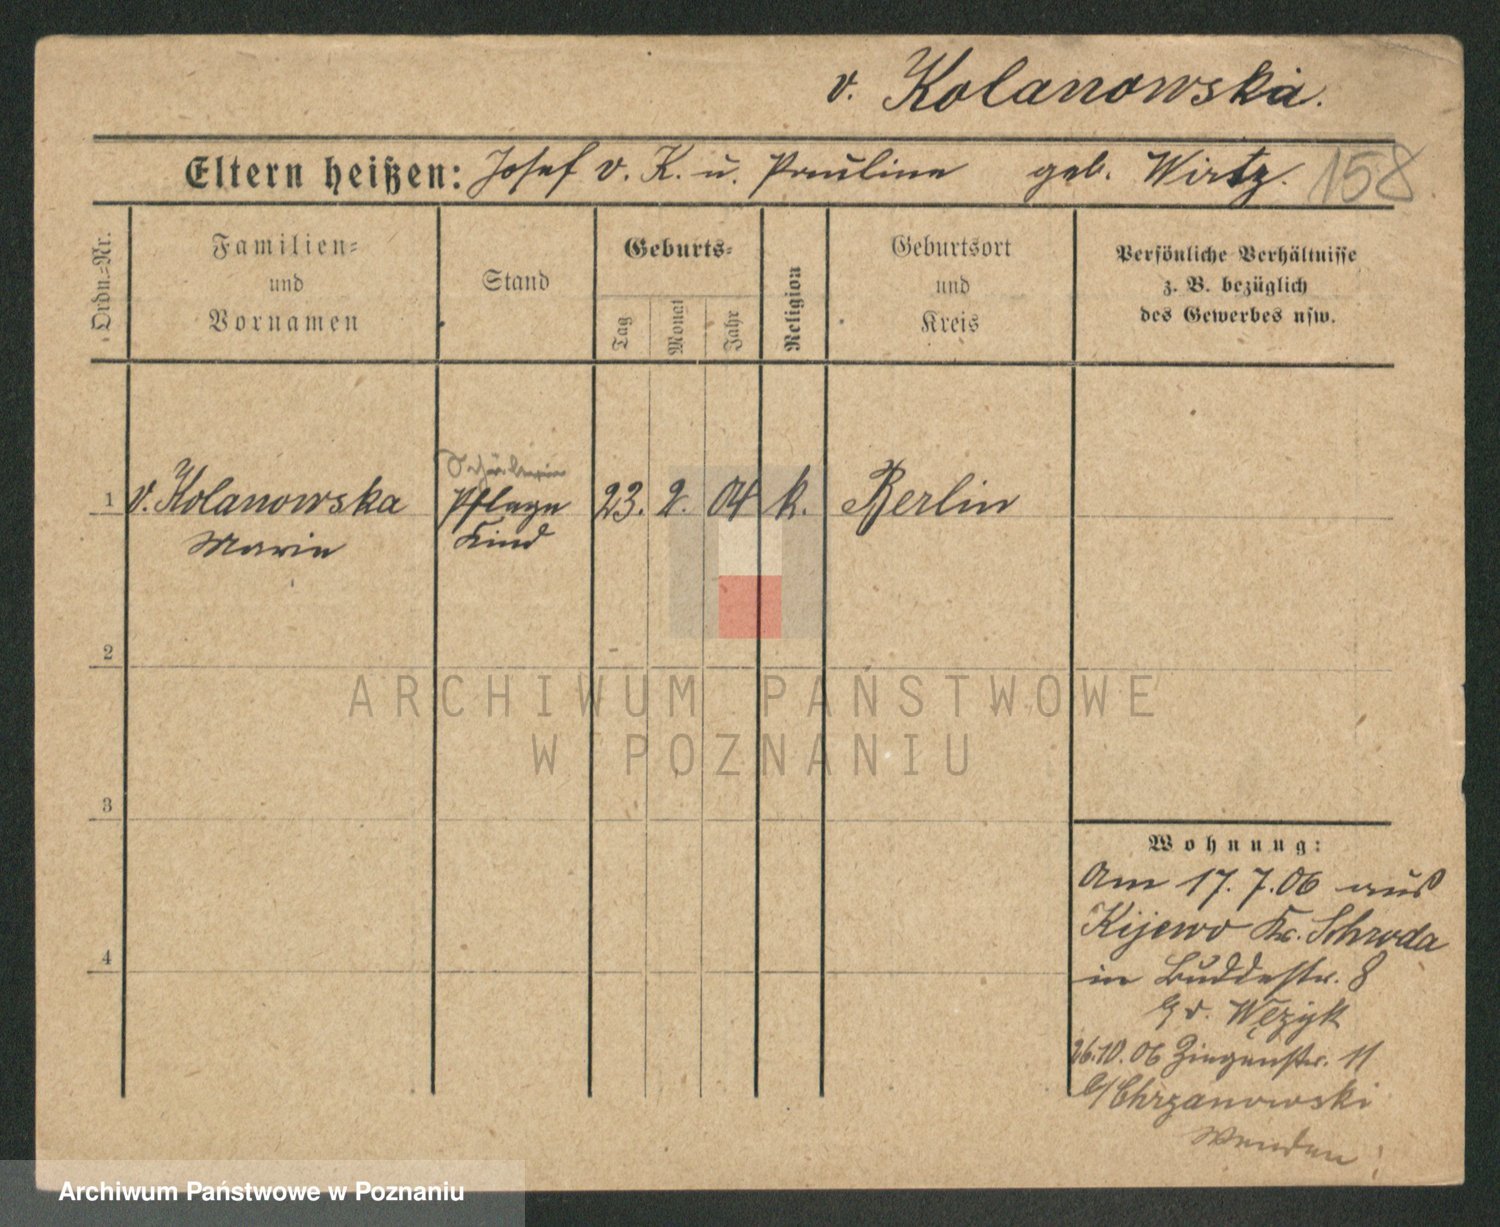 v. Kolanowska.
Eltern heißen: Josef v. K. u. Pauline geb. Wirtz. 158
Ordn.-Nr.
Familien-
und
Vornamen
Stand
Geburts-
Tag
Monat
Jahr
Religion
Geburtsort
und
Kreis
Persönliche Verhältnisse
z. B. bezüglich
des Gewerbes usw.
Schülerin
1 v. Kolanowska Pflege 23. 2. 04 k. Berlin
Marie Kind
2
ARCHIWUM PAŃSTWOWE
W POZNANIU
3
Wohnung:
Am 17. 7. 06 aus
Kijewo Kr. Schroda
in Buddestr. 8
4
b/ v. Wężyk
26.10.06 Ziegenstr. 11
b/ Chrzanowski
Archiwum Państwowe w Poznaniu